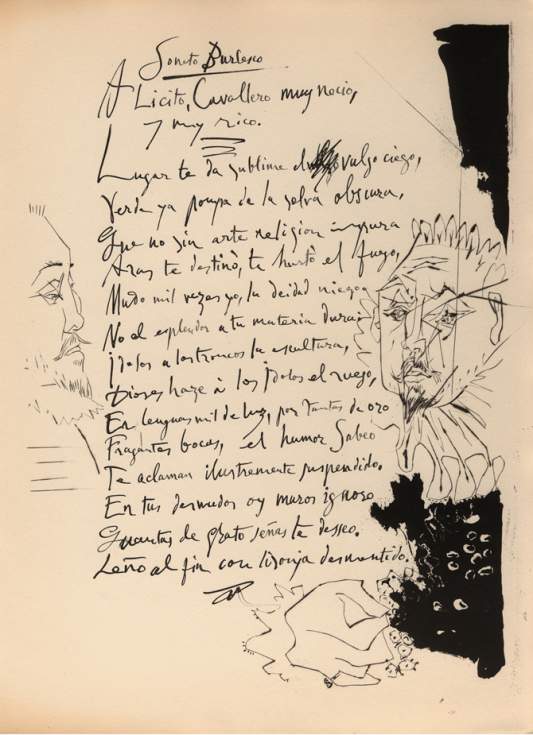 Soneto Burlesco
A Licito, Cavallero muy necio,
y muy rico.
Lugar te da sublime el vulgo ciego,
Verde ya pompa de la selva obscura,
Que no sin arte religion impura
Aras te destinò, te hurtò el fuego,
Mudo mil vezes yo, la deidad niego
No el esplendor a tu materia dura:
jdolos a los troncos la escultura,
Dioses haze à los jdolos el ruego,
En lenguas mil de luz, por tantas de oro
Fragantes bocas, el humor Sabeo
Te aclaman ilustremente suspendido.
En tus desnudos oy muros ignoro
Quantas de grato señas te desseo.
Leño al fin con lisonja desmentido.